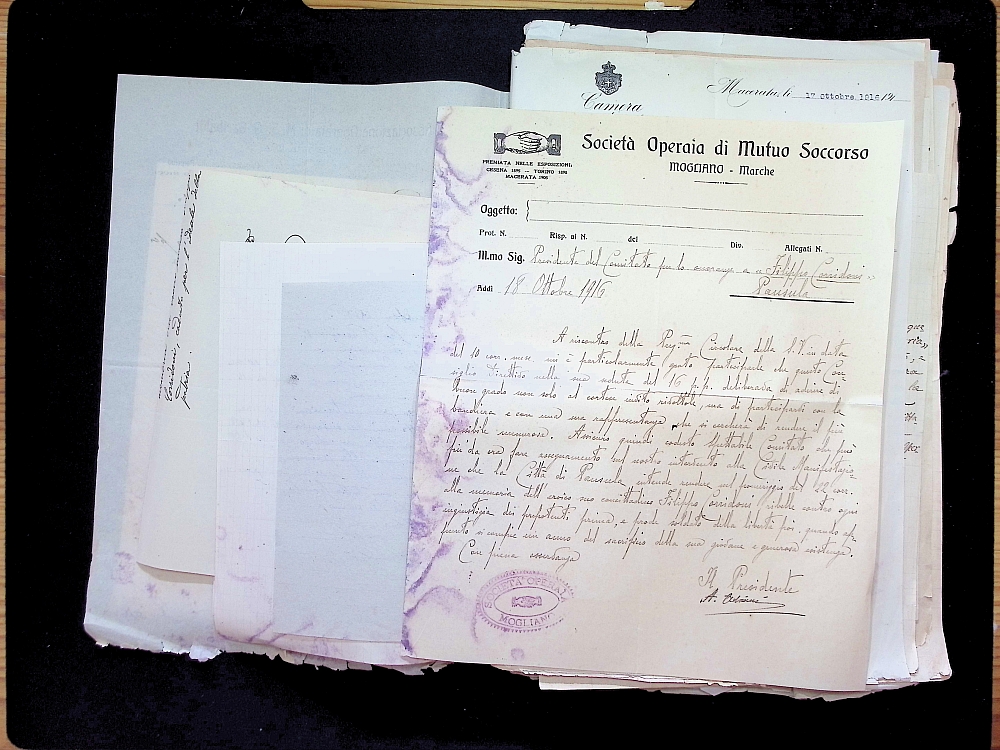 Camera
Macerata, li 17 Ottobre 1916
Società Operaia di Mutuo Soccorso
MOGLIANO - Marche
PREMIATA NELLE ESPOSIZIONI
CESENA 1895 — TORINO 1898
MACERATA 1905
Oggetto:
Prot. N. Risp. al N. del Div. Allegati N.
Ill.mo Sig. Presidente del Comitato per le onoranze a « Filippo Corridoni »
Pausula
Addì 18 Ottobre 1916
A riscontro della Preg.ma Circolare della S.V. in data
del 10 corr. mese, mi è particolarmente grato partecipare che questo Con-
siglio Direttivo nella sua seduta del 16 p.p. deliberava di aderire di
buon grado non solo al cortese invito rivoltole, ma di parteciparvi con la
bandiera e con una sua rappresentanza che si cercherà di rendere il più
possibile numerosa. Assicuro quindi codesto Spettabile Comitato che può
fin da ora fare assegnamento sul nostro intervento alla Civile Manifestazio-
ne che la Città di Pausula intende rendere nel pomeriggio del 22 corr.
alla memoria dell'eroico suo concittadino Filippo Corridoni ribelle contro ogni
ingiustizia dei prepotenti prima, e prode soldato della libertà poi, quando ap-
punto si compie un anno del sacrificio della sua giovane e generosa esistenza.
Con piena osservanza
Il Presidente
SOCIETÀ OPERAIA
MOGLIANO
Corridoni, caduto per l'ideale della
patria.